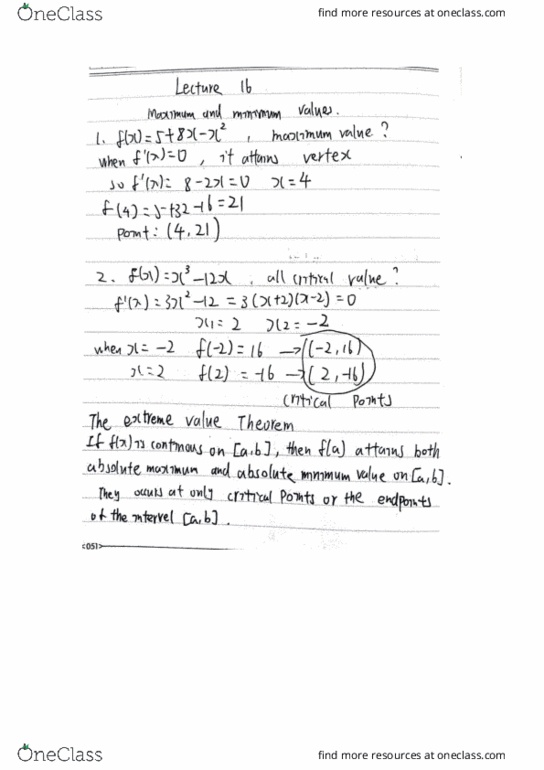 OneClass
find more resources at oneclass.com
Lecture 16
Maximum and minimum values.
1. f(x)=5+8x-x², maximum value?
when f'(x)=0, it attains vertex
so f'(x)= 8-2x=0 x=4
f(4)=5+32-16=21
Point: (4,21)
2. f(x)=x³-12x, all critical value?
f'(x)=3x²-12=3(x+2)(x-2)=0
x1=2 x2=-2
when x=-2 f(-2)=16 →(-2,16)
x=2 f(2)=-16 →(2,-16)
Critical Points
The extreme value Theorem
If f(x) is continous on [a,b], then f(a) attains both
absolute maximum and absolute minimum value on [a,b].
They occurs at only critical Points or the endpoints
of the intervel [a,b].
<051>
OneClass
find more resources at oneclass.com